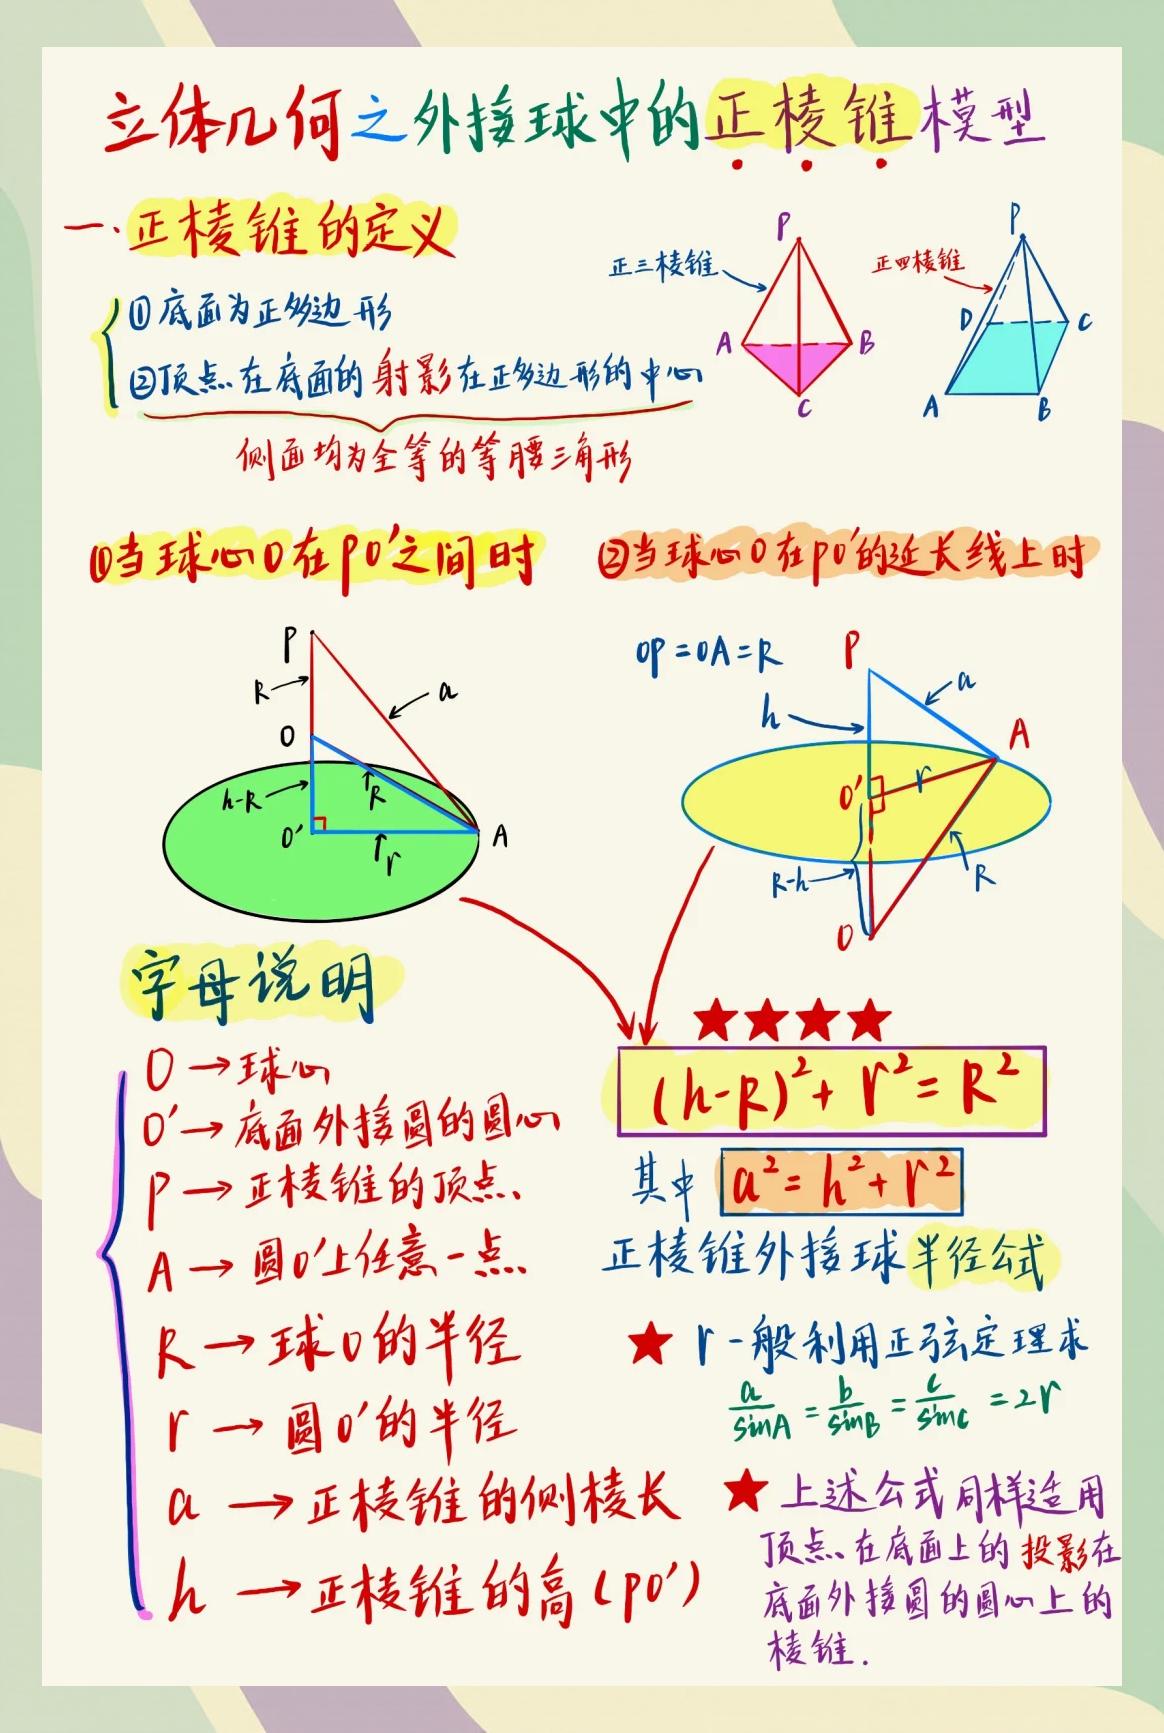 立体几何之外接球中的正棱锥模型
一.正棱锥的定义
①底面为正多边形
②顶点在底面的射影在正多边形的中心
侧面均为全等的等腰三角形
正三棱锥
P
A
B
C
正四棱锥
P
D
C
A
B
①当球心O在PO'之间时
P
R
a
O
h-R
R
O'
A
r
②当球心O在PO'的延长线上时
OP=OA=R
P
a
h
A
O'
r
R-h
R
O
字母说明
O→球心
O'→底面外接圆的圆心
P→正棱锥的顶点
A→圆O'上任意一点
R→球O的半径
r→圆O'的半径
a→正棱锥的侧棱长
h→正棱锥的高(PO')
★★★★
(h-R)²+r²=R²
其中 a²=h²+r²
正棱锥外接球半径公式
★ r一般利用正弦定理求
a/sinA = b/sinB = c/sinC = 2r
★上述公式同样适用
顶点在底面上的投影在
底面外接圆的圆心上的
棱锥.